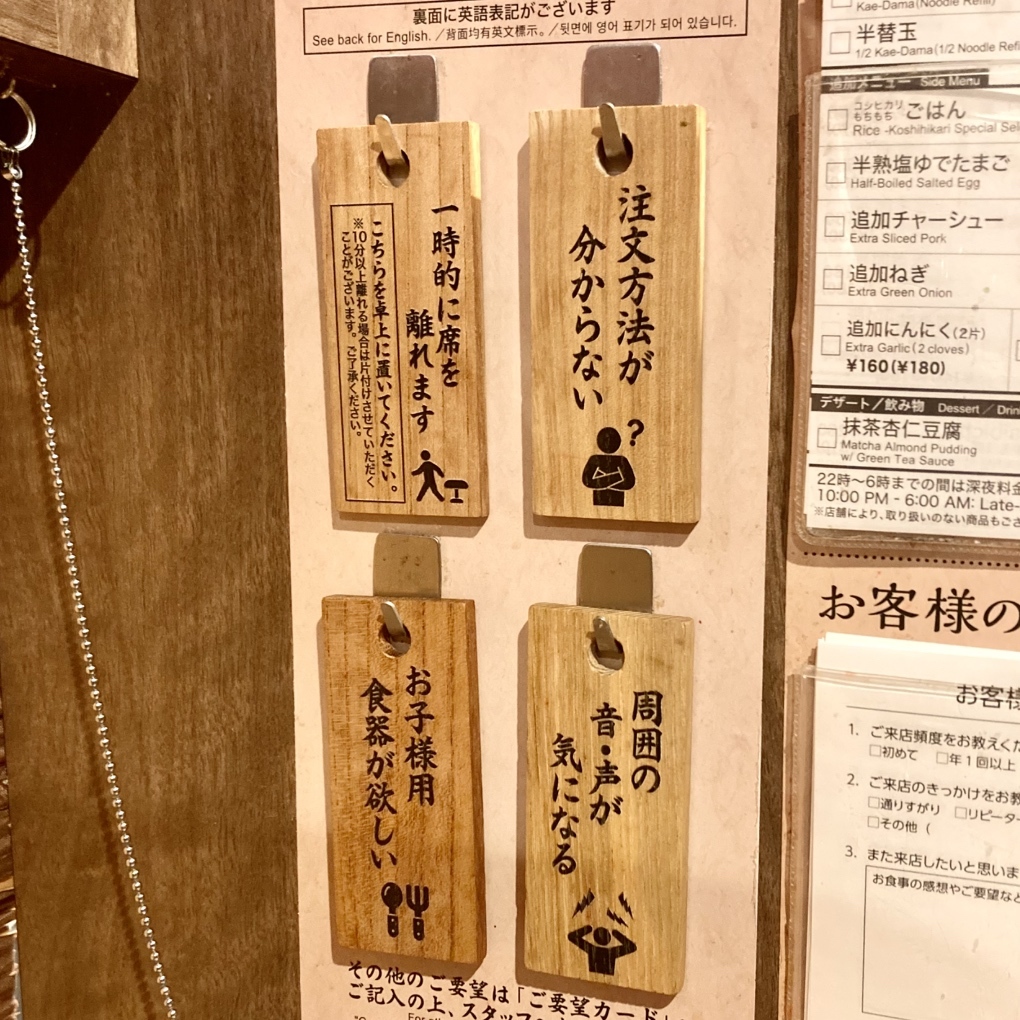 裏面に英語表記がございます
See back for English. ／背面均有英文標示。／뒷면에 영어 표기가 되어 있습니다.
一時的に席を
離れます
こちらを卓上に置いてください。
※10分以上離れる場合は片付けさせていただく
ことがございます。ご了承ください。
注文方法が
分からない
?
お子様用
食器が欲しい
周囲の
音・声が
気になる
その他のご要望は「ご要望カード」
ご記入の上、スタッフ
Kae-Dama(Noodle Refill)
半替玉
1/2 Kae-Dama(1/2 Noodle Refi
追加メニュー Side Menu
コシヒカリ
もちもち ごはん
Rice -Koshihikari Special Sel
半熟塩ゆでたまご
Half-Boiled Salted Egg
追加チャーシュー
Extra Sliced Pork
追加ねぎ
Extra Green Onion
追加にんにく(2片)
Extra Garlic(2 cloves)
¥160(¥180)
デザート／飲み物 Dessert ／ Drin
抹茶杏仁豆腐
Matcha Almond Pudding
w/ Green Tea Sauce
22時～6時までの間は深夜料金
10:00 PM - 6:00 AM: Late-
※店舗により、取り扱いのない商品もござ
お客様の
お客様
1. ご来店頻度をお教えくだ
□初めて □年1回以上
2. ご来店のきっかけをお教
□通りすがり □リピーター
□その他 (
3. また来店したいと思いま
お食事の感想やご要望など